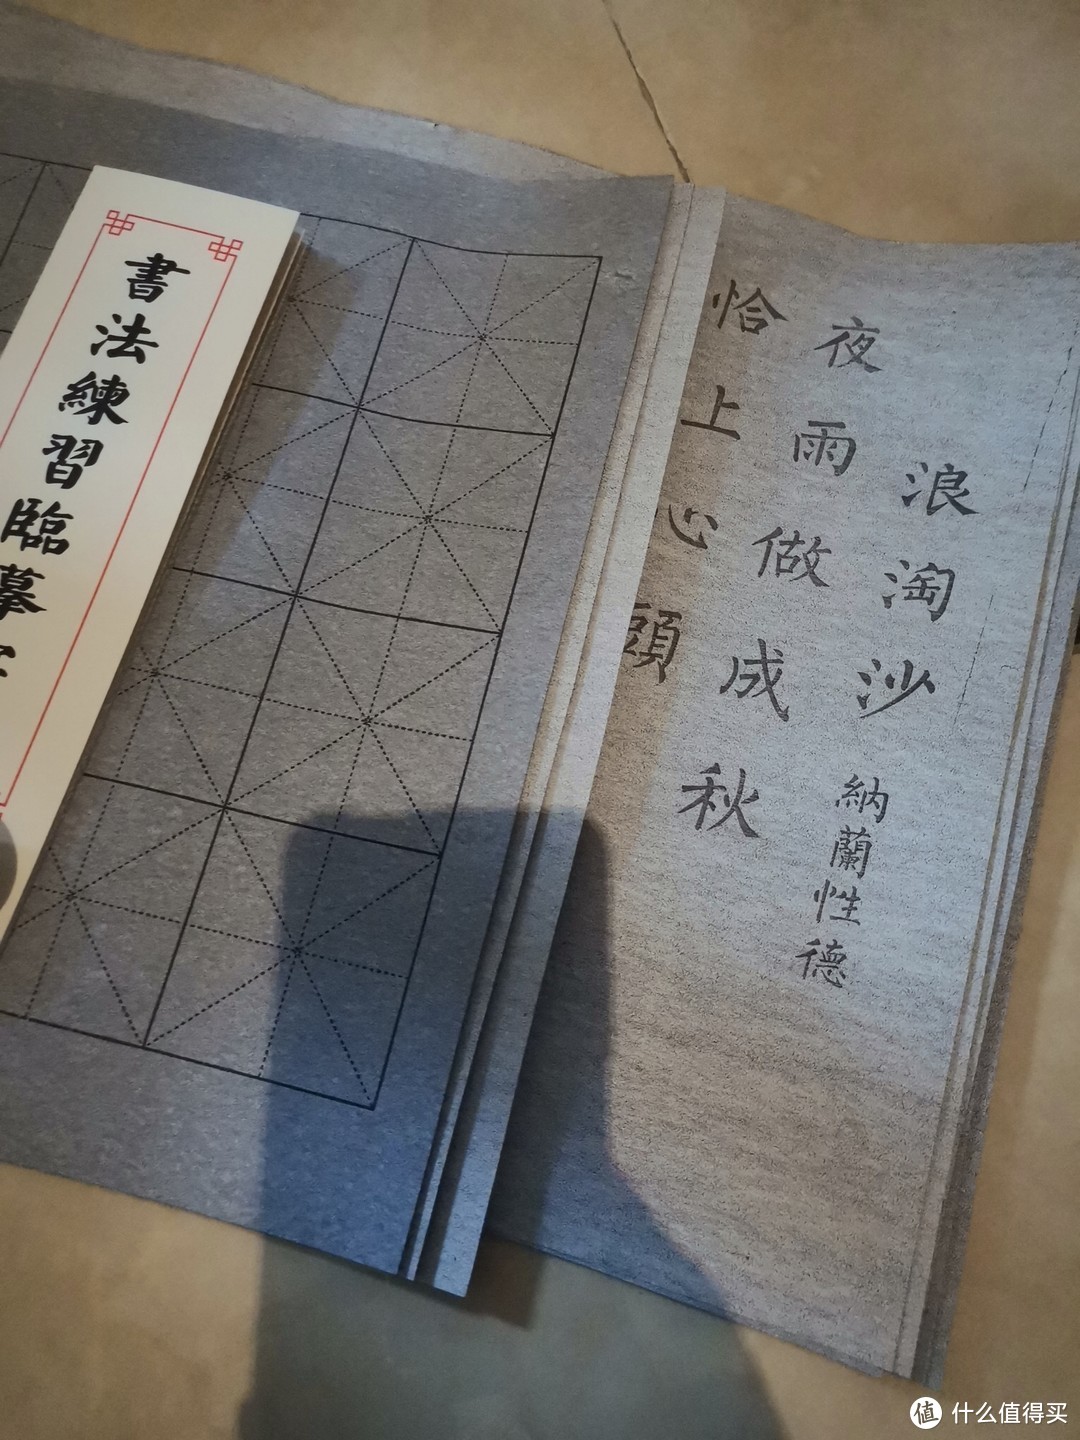 書法練習臨摹
浪淘沙
納蘭性德
夜雨做成秋
恰上心頭
值 什么值得买